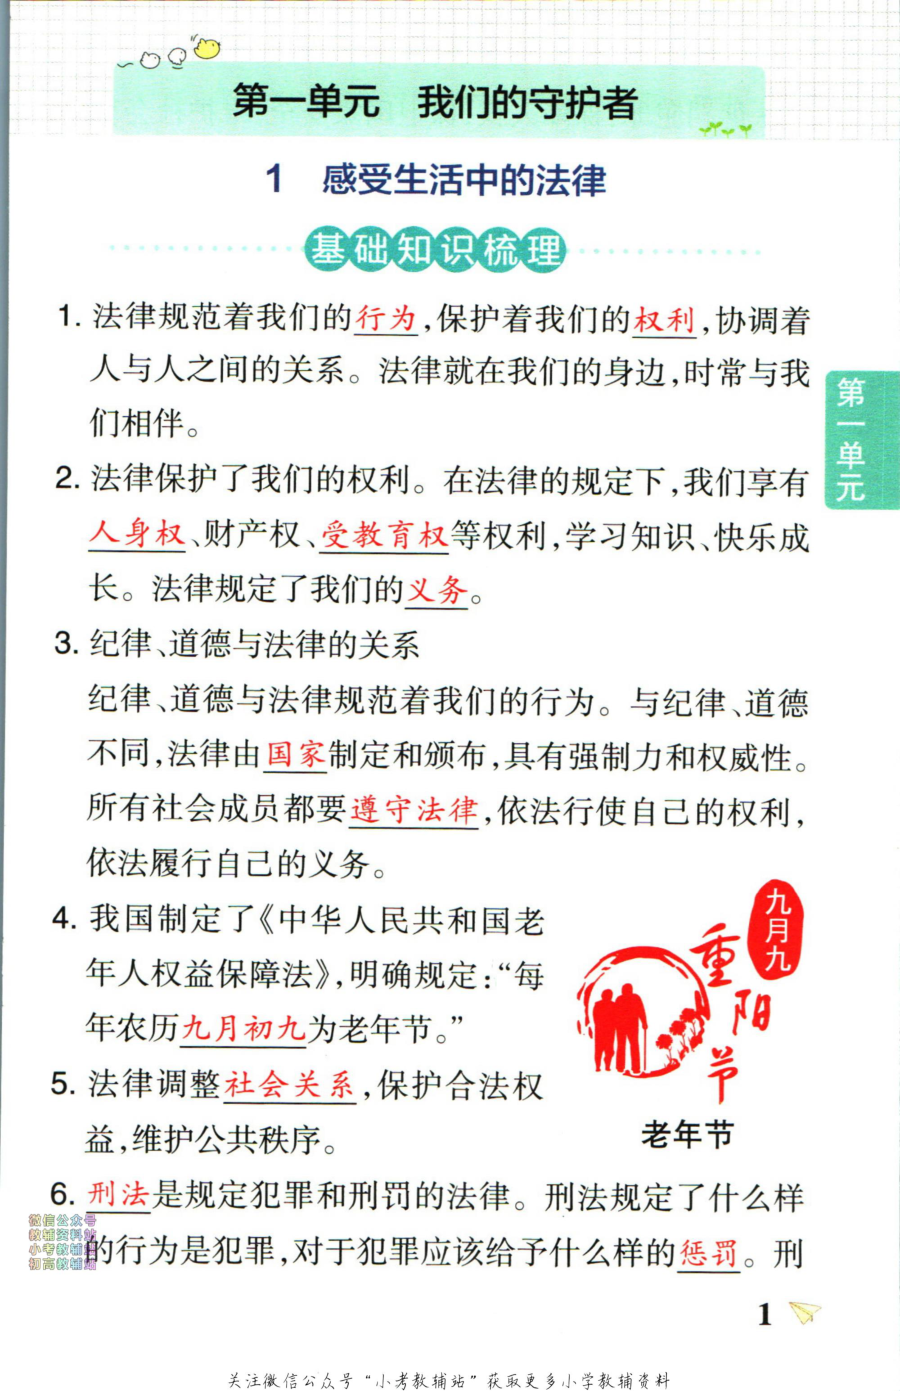 第一单元 我们的守护者
1 感受生活中的法律
基础知识梳理
1. 法律规范着我们的行为,保护着我们的权利,协调着
人与人之间的关系。法律就在我们的身边,时常与我
们相伴。
2. 法律保护了我们的权利。在法律的规定下,我们享有
人身权、财产权、受教育权等权利,学习知识、快乐成
长。法律规定了我们的义务。
3. 纪律、道德与法律的关系
纪律、道德与法律规范着我们的行为。与纪律、道德
不同,法律由国家制定和颁布,具有强制力和权威性。
所有社会成员都要遵守法律,依法行使自己的权利,
依法履行自己的义务。
4. 我国制定了《中华人民共和国老
年人权益保障法》,明确规定:“每
年农历九月初九为老年节。”
5. 法律调整社会关系,保护合法权
益,维护公共秩序。
九月九
重阳节
老年节
6. 刑法是规定犯罪和刑罚的法律。刑法规定了什么样
的行为是犯罪,对于犯罪应该给予什么样的惩罚。刑
第一单元
微信公众号
教辅资料站
小考教辅站
初高教辅站
1
关注微信公众号“小考教辅站”获取更多小学教辅资料